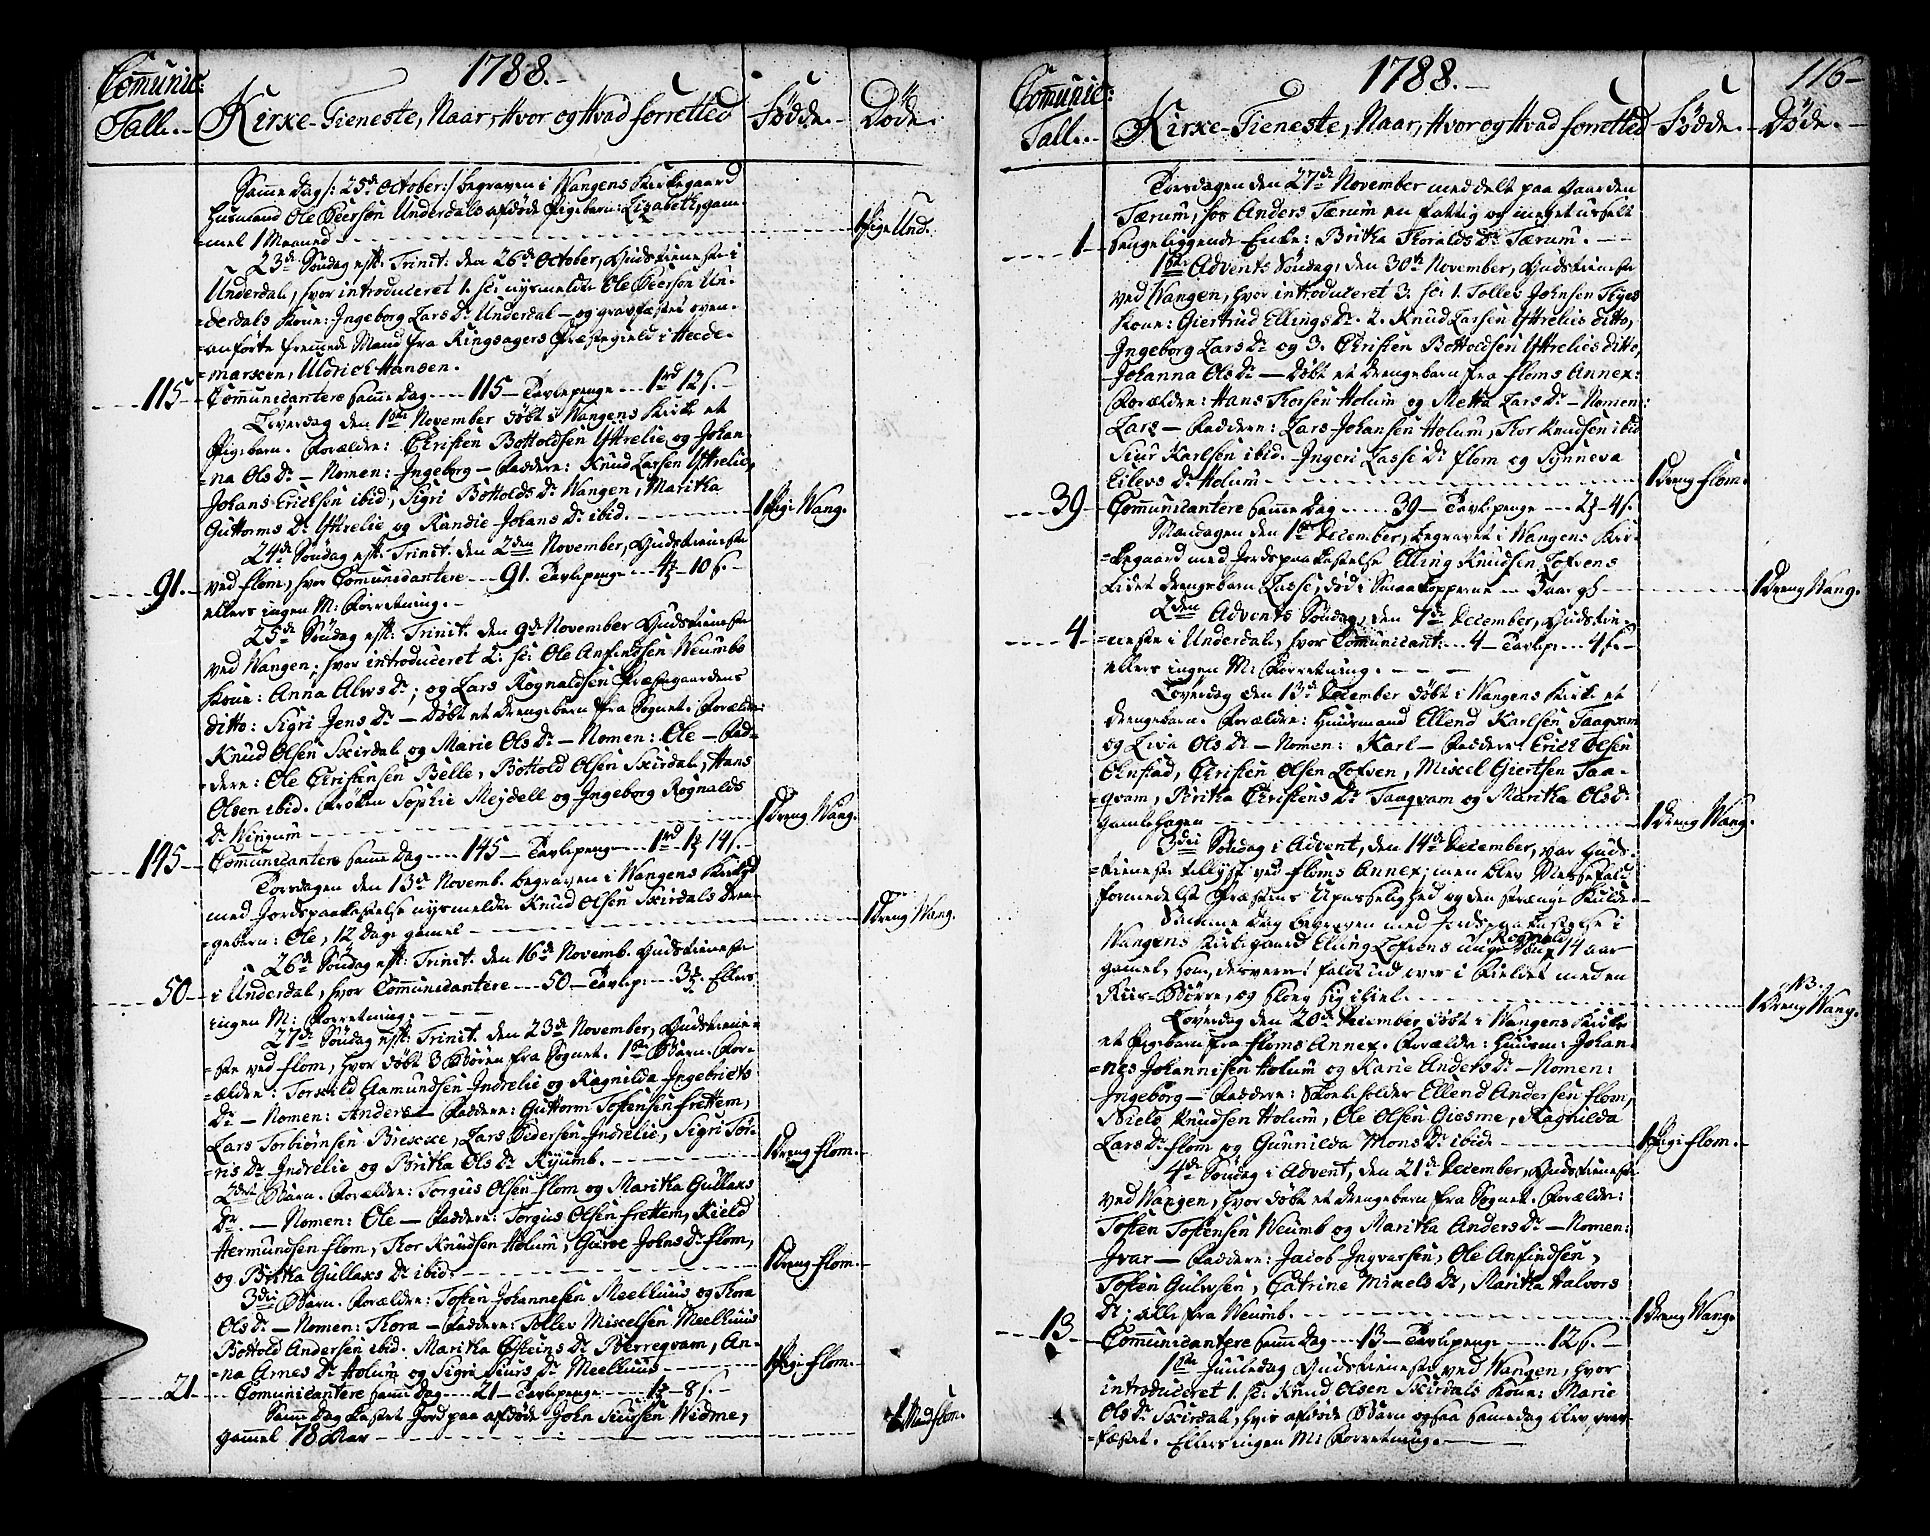 Comunic:
Tall.
1788.
Kirke-Tieneste, Naar, Hvor og Hvad forretted
Födde.
Döde.
Samme Dag /: 25de October :/ begraven i Wangens Kirkegaard
Huusmand Ole Peersön Underdals afdöde Pigebarn: Lizabeth, gam-
mel 1 Maaned
1 Pige Und.
23de Söndag eft: Trinit: den 26de October, Gudstieneste i
Underdal, hvor introduceret 1. sc: nysmeldte Ole Peersön Un-
derdals Kone: Ingeborg Lars Dr Underdal - og gravfæstet oven-
anförte fremmede Mand fra Ringsagers Præstegield i Hede-
marken, Uldrich Hansen.
115 Communicantere samme Dag 115 - Tavlepenge 1rd 12 s.
Löverdag den 1ste November döbt i Wangens Kirke et
Pigebarn. Forældre: Christen Bottoldsen Yttrelie og Johan-
na Ols Dr - Nomen: Ingeborg - Faddere: Knud Larsen Yttrelie,
Johans Erichsen ibid, Sigri Bottolds Dr Wangen, Maritha
Guttorms Dr Yttrelie og Randie Johans Dr ibid.
1 Pige Wang.
24de Söndag eft: Trinit: den 2den November, Gudstieneste
91. ved Flom, hvor Communicantere 91. Tavlepenge 4 10 s.
ellers ingen M: Forretning.
25de Söndag eft: Trinit: den 9de November Gudstieneste
ved Wangen; hvor introduceret 2. sc: Ole Anfindsen Neumbs
Kone: Anna Alws Dr; og Lars Rognaldsen Præstegaardens
ditto: Sigri Jens Dr - Döbt et Drengebarn fra Sognet. Forældre:
Knud Olsen Skirdal og Marie Ols Dr - Nomen: Ole - Fad-
dere: Ole Christensen Belle, Bottold Olsen Skirdal, Hans
Olsen ibid. Fröken Sophie Meydell og Ingeborg Rognalds
Dr Wingum
1 Dreng Wang.
145 Communicantere samme Dag 145 - Tavlepenge 1rd 1 14 s.
Torsdagen den 13de Novemb. begraven i Wangens Kirkegd
med Jordspaakastelse nysmeldte Knud Olsen Skirdals Dren-
gebarn: Ole, 12 Dage gamel
1 Dreng Wang.
26de Söndag eft: Trinit: den 16de Novemb. Gudstieneste
50 i Underdal, hvor Communicantere 50 - Tavlep: 3 Ellers
ingen M: Forretning.
27de Söndag eft: Trinit: den 23de November, Gudstiene-
ste ved Flom, hvor döbt 3 Börn fra Sognet. 1ste Barn. For-
ældre: Torkild Aamundsen Indrelie og Ragnilda Ingebricts
Dr - Nomen: Anders - Faddere: Guttorm Tostensen Frettem,
Lars Torbiörnsen Brekke, Lars Pedersen Indrelie, Sigri Tör-
ris Dr Indrelie og Britha Ols Dr Ryumb.
1 Dreng Flom.
2det Barn. Forældre: Torgus Olsen Flom og Maritha Gullaks
Dr. - Nomen: Ole - Faddere: Torgus Olsen Frettem, Kield
Hermundsen Flom, Thor Knudsen Holum, Guroe Johns Dr Flom,
og Britha Gullaks Dr ibid.
1 Dreng Flom.
3die Barn. Forældre: Tosten Johannesen Meelhuus og Thora
Ols Dr - Nomen: Thora - Faddere: Tollev Mikelsen Meelhuus
Bottold Andersen ibid. Maritha Östeins Dr Berregvam, An-
na Arnes Dr Holum og Sigri Siurs Dr Meelhuus
1 Pige Flom.
21 Comunicantere samme Dag 21 - Tavlepenge 1 8 s.
Samme Dag kastet Jord paa afdöde John Siursen Widme,
gammel 78 Aar
1 Mand Flom.
Comunic:
Tall.
1788.
116
Kirke-Tieneste, Naar, Hvor og Hvad forretted
Födde.
Döde.
Torsdagen den 27de November meddelt paa Gaarden
Tærum, hos Anders Tærum en fattig og meget usselt
1 sengeliggende Enke: Britha Thoralds Dr Tærum.
1ste Advents Söndag, den 30te November, Gudstieneste
ved Wangen, hvor introduceret 3. sc: 1. Tollev Johnsen
Kone: Giertrud Ellings Dr. 2. Knud Larsen Yttrelies ditto,
Ingeborg Lars Dr og 3. Christen Bottoldsen Yttrelies ditto,
Johanna Ols Dr - Döbt et Drengebarn fra Floms Annex.
Forældre: Hans Thorsen Holum og Metta Lars Dr - Nomen:
Lars - Faddere: Lars Johansen Holum, Thor Knudsen ibid
Siur Karlsen ibid. Ingeri Lasse Dr Flom og Synneva
Eilevs Dr Holum
1 Dreng Flom.
39 Communicantere samme Dag 39 - Tavlepenge 2 4 s.
Mandagen den 1ste December, begravet i Wangens Kir-
kegaard med Jordspaakastelse Elling Knudsen Lofvens
lidet Drengebarn Lasse, död i Smaakopperne
1 Dreng Wang.
2den Advents Söndag, den 7de December, Gudstie-
4 neste i Underdal, hvor Communicant: 4 - Tavlep: 4 s.
ellers ingen M: Forretning.
Löverdag den 13de December döbt i Wangens Kirke et
Drengebarn. Forældre: Huusmand Ellend Karlsen Taagvam
og Liva Ols Dr - Nomen: Karl - Faddere: Erich Olsen
Onstad, Christen Olsen Lofven, Mikel Giertsen Taa-
gvam, Britha Christens Dr Taagvam og Maritha Ols Dr
Gamlehagen
1 Dreng Wang.
3die Söndag i Advent, den 14de December, var Guds-
tieneste tillyst ved Floms Annex; men blev Messefald
formedelst Præstens Upasselighed og den strænge Kulde.
Samme Dag begraven med Jordspaakastelse i
Wangens Kirkegaard Elling Lofvens unge Sön Rognald 14 aar
gamel, som, desverre! faldt ud over i Fieldet med en
Riis-Börre, og slog sig ihiel.
NB.
1 Dreng Wang.
Löverdag den 20de December döbt i Wangens Kirke
et Pigebarn fra Floms Annex. Forældre: Huusm: Johan-
nes Johannesen Holum og Karie Anders Dr - Nomen:
Ingeborg - Faddere: Skoleholder Ellend Andersen Flom,
Niels Knudsen Holum, Ole Olsen Giesme, Ragnilda
Lars Dr Flom og Gunnilda Mons Dr ibid
1 Pige Flom.
4de Söndag i Advent, den 21de December, Gudstieneste
ved Wangen, hvor döbt et Drengebarn fra Sognet. Forældre:
Tosten Tostensen Neumb og Maritha Anders Dr - Nomen:
Ivar - Faddere: Jacob Ingvarsen, Ole Anfindsen,
Tosten Gulvsen, Catrine Mikels Dr, Maritha Halvors
Dr; alle fra Neumb.
1 Dreng Wang.
13 Communicantere samme Dag 13 - Tavlepenge 12 s.
1ste Juuledag Gudstieneste ved Wangen, hvor
introduceret 1. sc: Knud Olsen Skirdals Kone: Marie
Ols Dr Skirdal, hvis afdöde Barn ogsaa samedag blev grav-
fæstet. Ellers ingen M: Forretning.